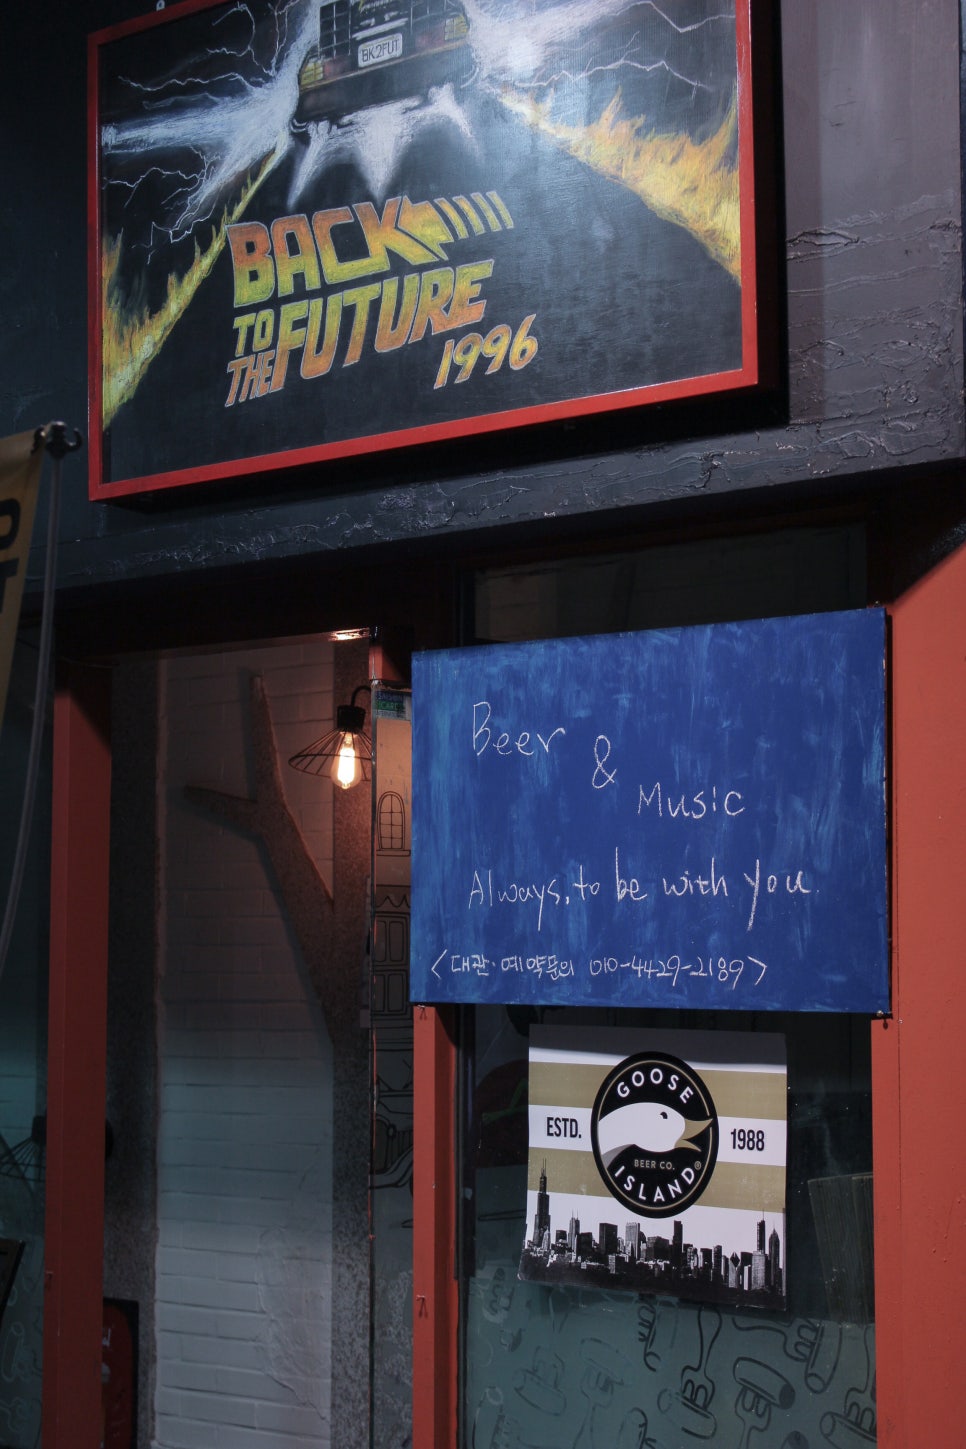 BK2FUT
BACK
TO
THE FUTURE
1996
Beer
&
Music
Always, to be with you
<대관·예약문의 010-4429-2189>
GOOSE
ESTD. 1988
BEER CO.
ISLAND®